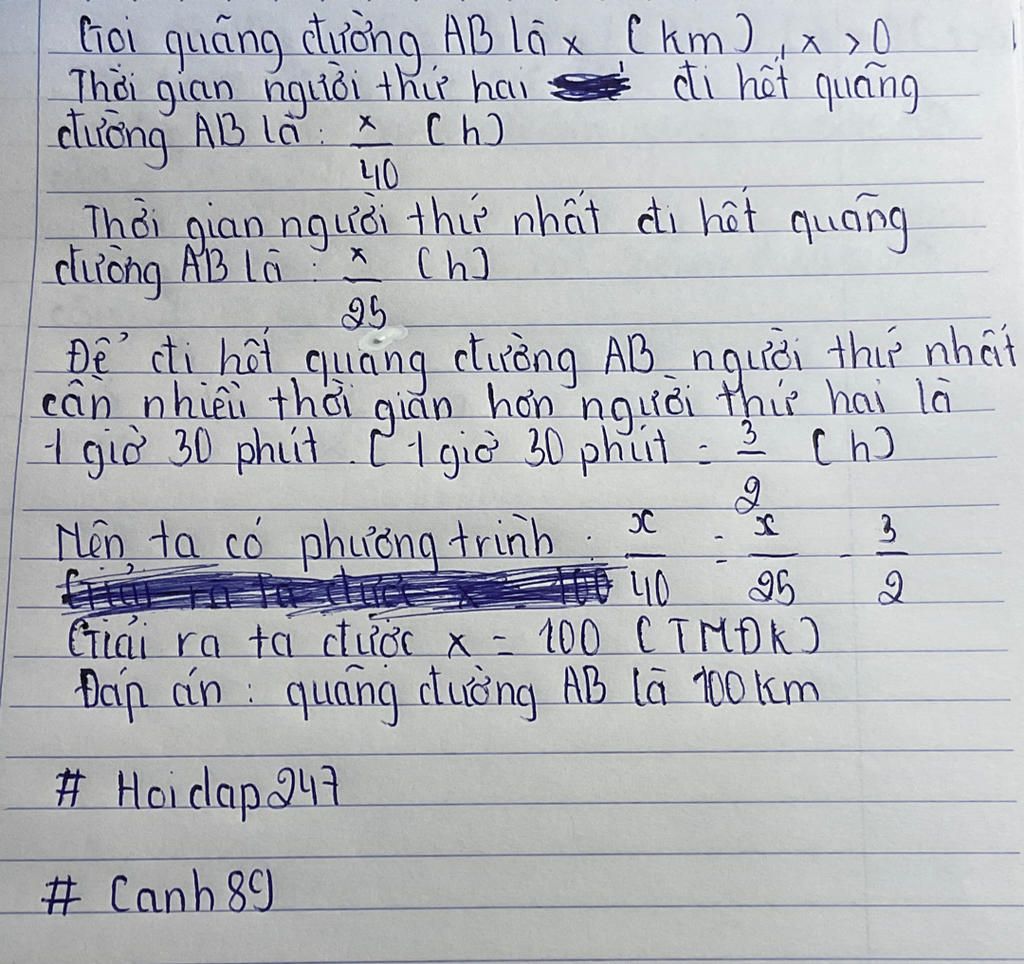 Gọi quãng đường AB là x (km), x > 0
Thời gian người thứ hai đi hết quãng
đường AB là : x/40 (h)
Thời gian người thứ nhất đi hết quãng
đường AB là : x/25 (h)
Để đi hết quãng đường AB người thứ nhất
cần nhiều thời gian hơn người thứ hai là
1 giờ 30 phút. ( 1 giờ 30 phút = 3/2 (h)
Nên ta có phương trình : x/40 = x/25 - 3/2
Giải ra ta được x = 100 (TMĐK)
Đáp án : quãng đường AB là 100 km
# Hoidap247
# Canh89